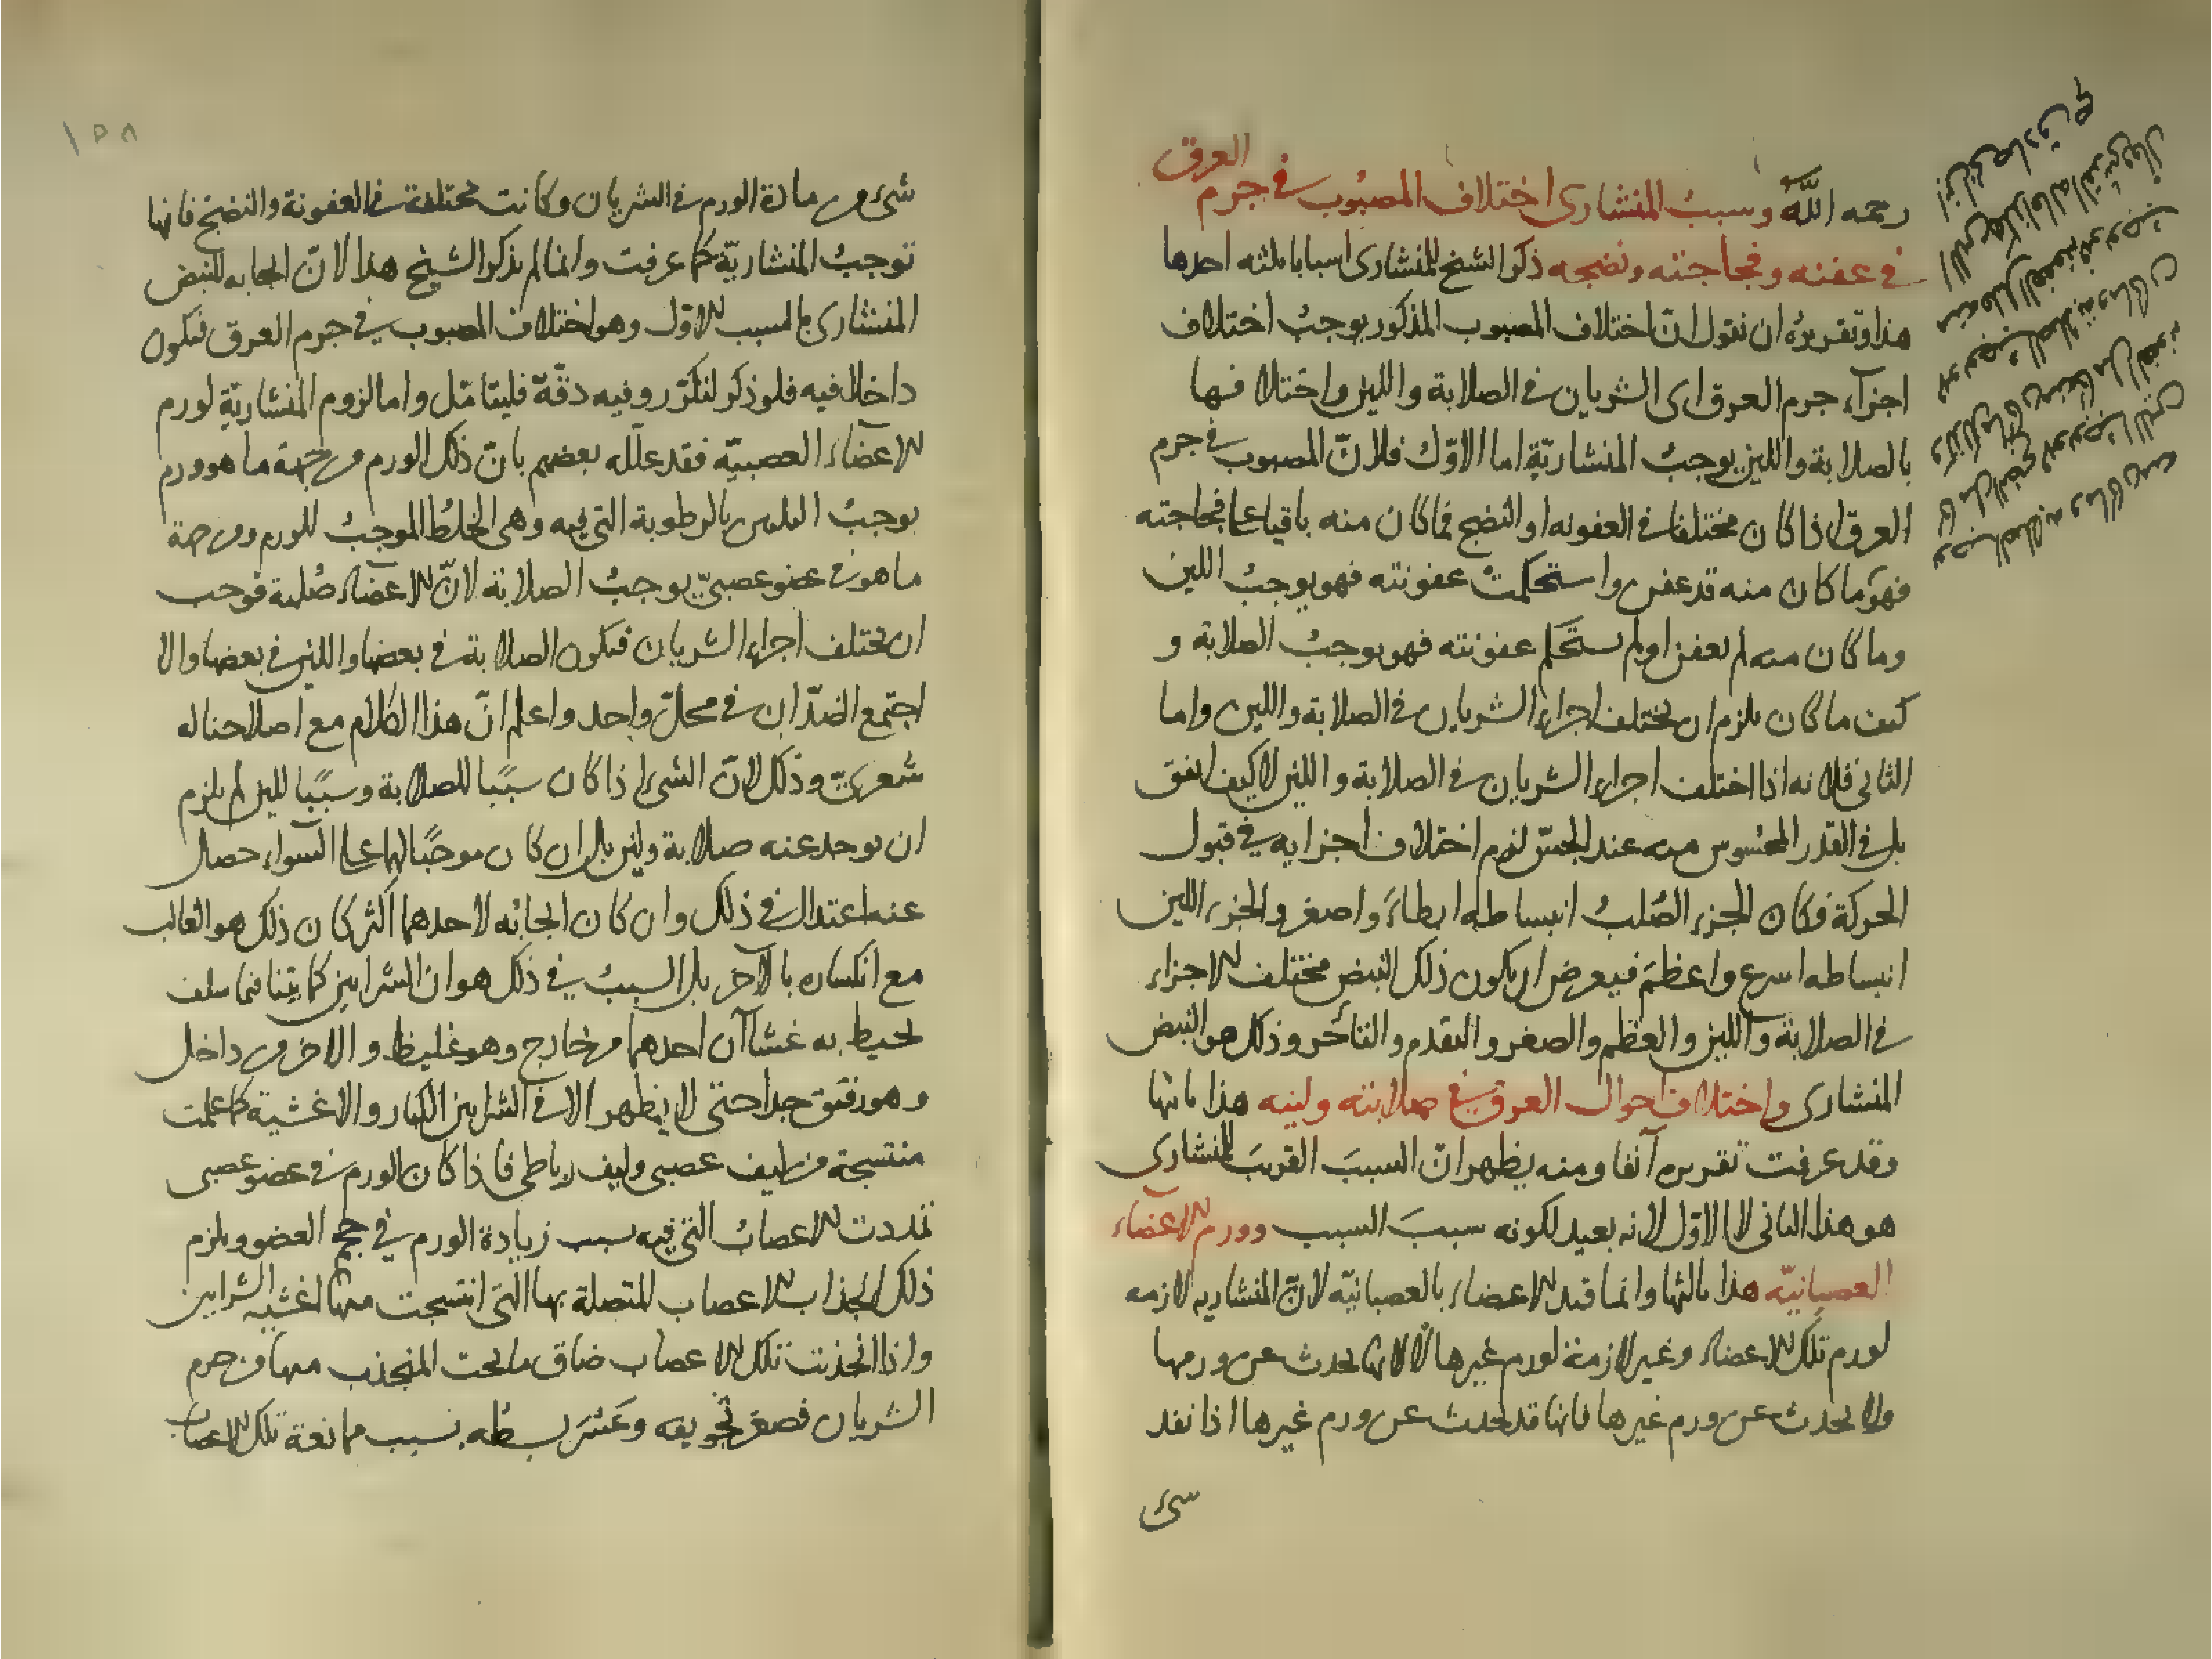 رحمه الله وسبب المنشارى اختلاف المصبوب فى جرم العرق
فى عفنه وفجاجته ونضجه ذكر الشيخ للمنشارى اسبابا ثلثه احدها
هذا وتقريره ان نقول ان اختلاف المصبوب المذكور يوجب اختلاف
اجزآء جرم العرق اى الشريان فى الصلابة واللين واختلافها
بالصلابة واللين يوجب المنشاريّة اما الاوّل فلانّ المصبوب فى جرم
العرق اذا كان مختلفا فى العفونه او النضج فما كان منه باقيا على فجاجته
فهو وما كان منه قد عفن واستحكمت عفونته فهو يوجب اللين
وما كان منه لم يعفن او لم تستحكم عفونته فهو يوجب الصلابة و
كيف ما كان يلزم ان يختلف اجزاء الشريان فى الصلابة واللين واما
الثانى فلانه اذا اختلف اجزاء الشريان فى الصلابة واللين لا كيف اتفق
بل فى القدر المحسوس منه عند الجسّ لزم اختلاف اجزايه فى قبول
الحركة فكان الجزء الصُلبُ انبساطه ابطاءَ واصغر والجزء اللين
انبساطه اسرع واعظمَ فيعرض ان يكون ذلك النبض مختلف الاجزاء
فى الصلابة واللين والعظم والصغر والتقدم والتأخر وذلك هو النبض
المنشارى واختلاف احوال العرق فى صلابته ولينه هذا ثانيها
وقد عرفت تقريره آنفا ومنه يظهر انّ السببَ القريبَ للمنشارى
هو هذا الثانى لا الاوّل لانه بعيد لكونه سببَ السبب وورم الاعضاء
العصبانيّه هذا ثالثها وانما قيد الاعضاء بالعصبانيّه لانّ المنشاريه لازمه
لورم تلك الاعضاء وغير لازمة لورم غيرها لا لانها تحدث عن ورمها
ولا تحدث عن ورم غيرها فانها قد تحدث عن ورم غيرها اذا نفد
شىء
١٥٨
شىء من مادة الورم فى الشريان وكانت مختلفة فى العفونة والنضج فانها
توجبُ المنشاريّة كما عرفت وانما لم يذكر الشيخ هذا لانّ ايجابه للنبض
المنشارى بالسبب الاوّل وهو اختلاف المصبوب فى جرم العرق فيكون
داخلا فيه فلو ذكر لتكرّر وفيه دقّة فليتامّل واما لزوم المنشاريّة لورم
الاعضاء العصبيّة فقد علّله بعضهم بانّ ذلك الورم من جهة ما هو ورم
يوجبُ التليين بالرطوبة التى فيه وهى الخلطُ الموجبُ للورم ومن جهة
ما هو فى عضو عصبىّ يوجبُ الصلابة لانّ الاعضاء صُلبة فوجب
ان تختلف اجزاء الشريان فيكون الصلابة فى بعضها واللين فى بعضها والا
اجتمع الضدّان فى محلّ واحد واعلم انّ هذا الكلام مع اصلاحنا له
شعرىّ وذلك لانّ الشىء اذا كان سببًا للصلابة وسببًا للين لم يلزم
ان يوجد عنه صلابة ولين بل ان كان موجبًا لهما على السواء حصل
عنه اعتدال فى ذلك وان كان ايجابُه لاحدهما اكثر كان ذلك هو الغالب
مع انكساره بالآخر بل السببُ فى ذلك هو ان الشرايين كما بيّنا فيما سلف
تحيط به غشاآن احدهما من خارج وهو غليظ والاخر من داخل
وهو رقيق جدا حتى لا يظهر الا فى الشرايين الكبار والاغشية كما علمت
منتسجة من ليف عصبى وليف رباطى فاذا كان الورم فى عضو عصبى
تمددت الاعصابُ التى فيه بسبب زيادة الورم فى حجم العضو ويلزم
ذلك انجذاب الاعصاب المتصلة بها التى انتسجت منها اغشيه الشرايين
واذا انجذبت تلك الاعصاب ضاق ما تحت المنجذب منها من جرم
الشريان فصغر تجويفه وعَسُرَ بسطُه بسبب ممانعة تلك الاعصاب